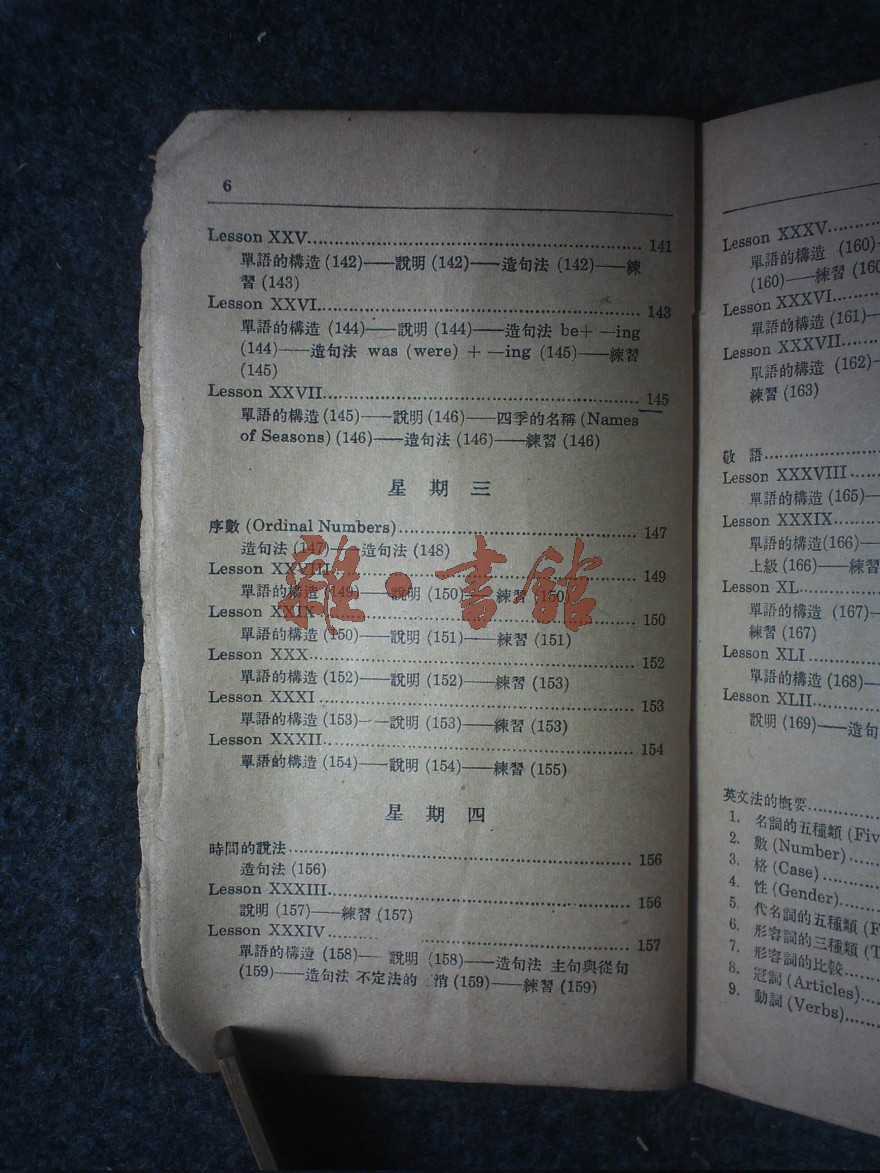 6
Lesson XXV 141
單語的構造 (142)——說明 (142)——造句法 (142)——練
習 (143)
Lesson XXVI 143
單語的構造 (144)——說明 (144)——造句法 be+ —ing
(144)——造句法 was (were) + —ing (145)——練習
(145)
Lesson XXVII 145
單語的構造 (145)——說明 (146)——四季的名稱 (Names
of Seasons) (146)——造句法 (146)——練習 (146)
星期三
序數 (Ordinal Numbers) 147
造句法 (147)——造句法 (148)
Lesson XXVIII 149
單語的構造 (149)——說明 (150)——練習 (150)
Lesson XXIX 150
單語的構造 (150)——說明 (151)——練習 (151)
Lesson XXX 152
單語的構造 (152)——說明 (152)——練習 (153)
Lesson XXXI 153
單語的構造 (153)——說明 (153)——練習 (153)
Lesson XXXII 154
單語的構造 (154)——說明 (154)——練習 (155)
星期四
時間的說法 156
造句法 (156)
Lesson XXXIII 156
說明 (157)——練習 (157)
Lesson XXXIV 157
單語的構造 (158)——說明 (158)——造句法 主句與從句
(159)——造句法 不定法的 消 (159)——練習 (159)
雜·書館
Lesson XXXV
單語的構造 (160)
(160)——練習 (160
Lesson XXXVI
單語的構造 (161)
Lesson XXXVII
單語的構造 (162)
練習 (163)
敬語
Lesson XXXVIII
單語的構造 (165)
Lesson XXXIX
單語的構造 (166)
上級 (166)——練習
Lesson XL
單語的構造 (167)
練習 (167)
Lesson XLI
單語的構造 (168)
Lesson XLII
說明 (169)——造句
英文法的概要
1. 名詞的五種類 (Fiv
2. 數 (Number)
3. 格 (Case)
4. 性 (Gender)
5. 代名詞的五種類 (F
6. 形容詞的三種類 (T
7. 形容詞的比較
8. 冠詞 (Articles)
9. 動詞 (Verbs)